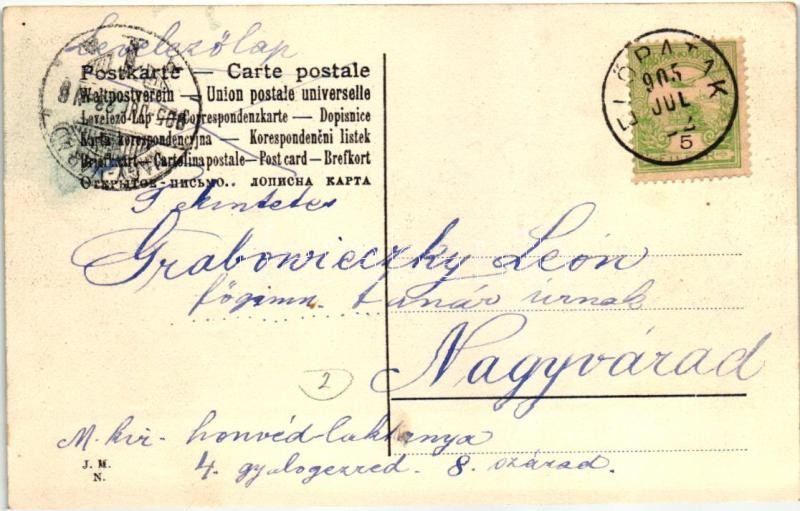 Levelezőlap
Postkarte — Carte postale
Weltpostverein — Union postale universelle
Levelező-Lap — Correspondenzkarte — Dopisnice
Karta korespondencyjna — Korespondenční listek
Briefkaart — Cartolina postale — Post card — Brefkort
Открытое письмо.. дописна карта
ELŐPATAK
905
JUL
5
Tekintetes
Grabowieczky León
főgimn. tanár úrnak
Nagyvárad
2
M. kir. honvéd-laktanya
4. gyalogezred. 8. század.
J. M.
N.